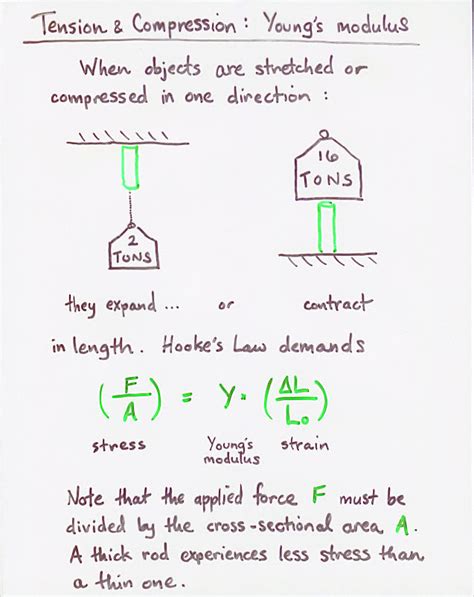 Tension & Compression: Young's modulus
When objects are stretched or
compressed in one direction:
2
TONS
16
TONS
they expand ... or contract
in length. Hooke's Law demands
(F/A) = Y · (ΔL/L₀)
stress Young's modulus strain
Note that the applied force F must be
divided by the cross-sectional area A.
A thick rod experiences less stress than
a thin one.